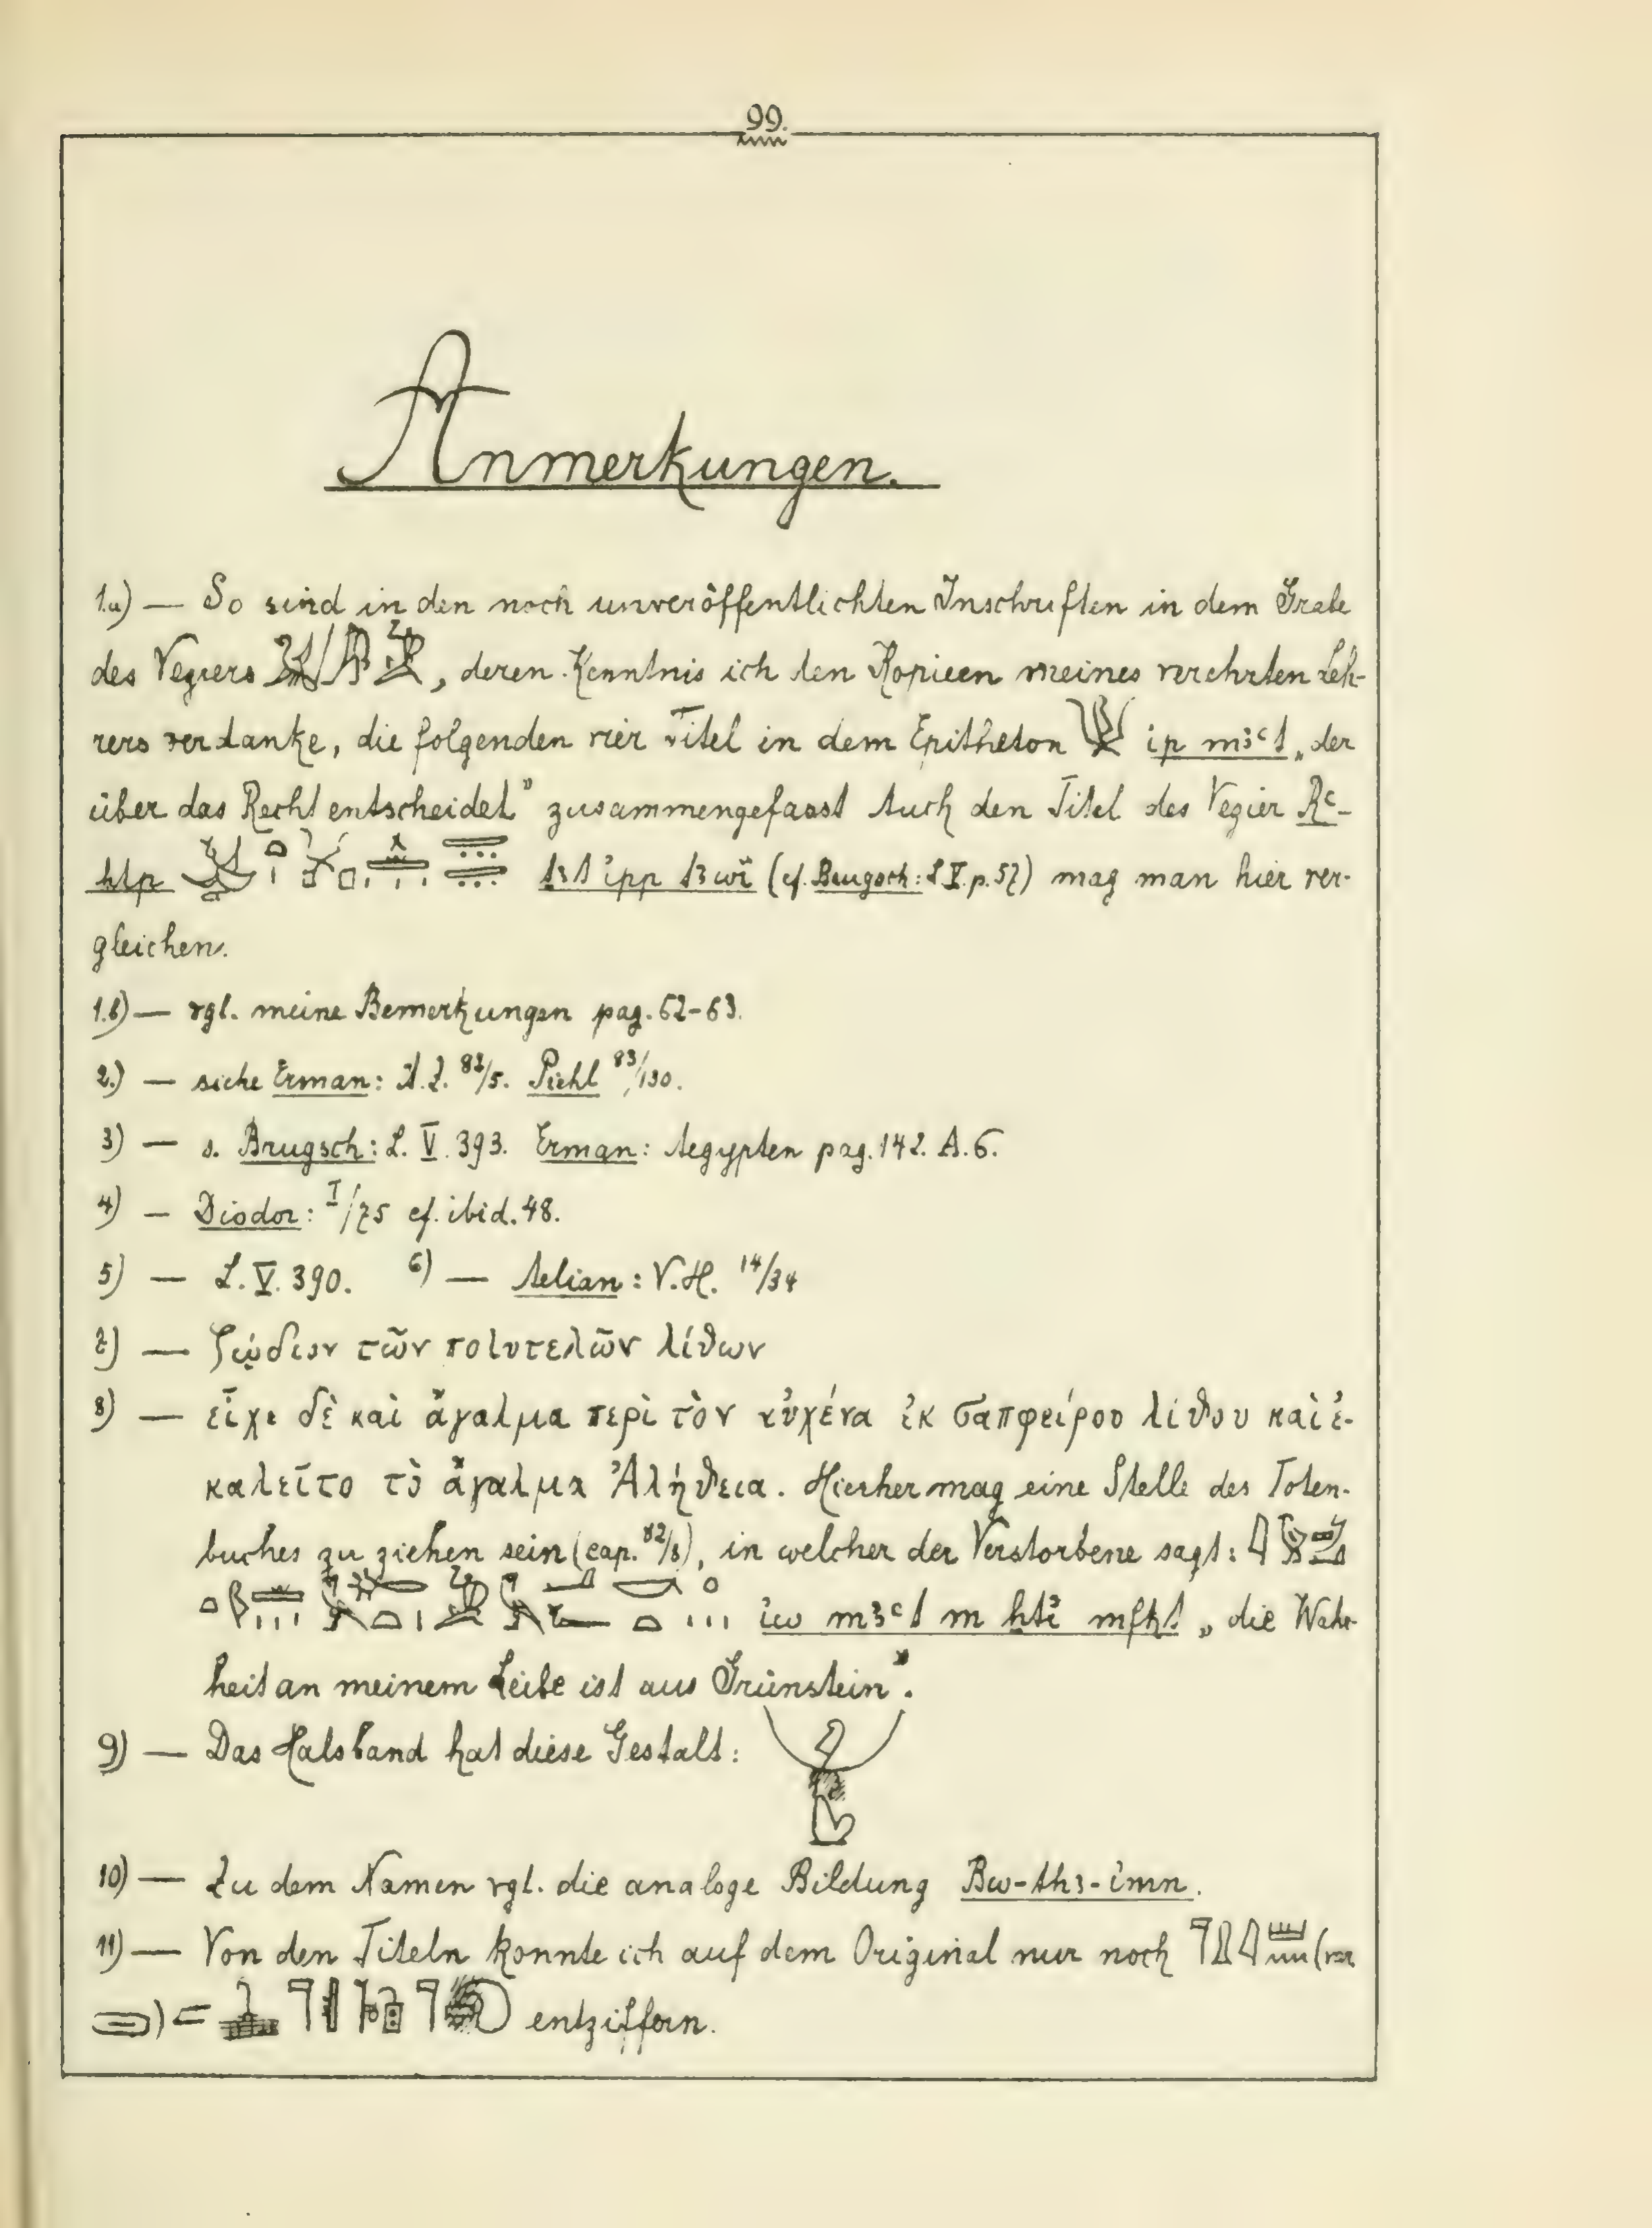 99.
Anmerkungen.
1.a) — So sind in den noch unveröffentlichten Inschriften in dem Grabe
des Veziers , deren Kenntnis ich den Kopieen meines verehrten Leh-
rers verdanke, die folgenden vier Titel in dem Epitheton ip m3ꜥt „der
über das Recht entscheidet” zusammengefasst Auch den Titel des Vezier Rꜥ-
htp (cf. Brugsch: L V. p. 57) mag man hier ver-
gleichen.
1.b) — vgl. meine Bemerkungen pag. 62-63.
2.) — siehe Erman: Ä.Z. 82/5. Piehl 83/130.
3) — s. Brugsch: L. V. 393. Erman: Aegypten pag. 142. A. 6.
4) — Diodor: I/75 cf. ibid. 48.
5) — L. V. 390. 6) — Aelian: V.H. 14/34
7) — ζῴδιον τῶν πολυτελῶν λίθων
8) — εἶχε δὲ καὶ ἄγαλμα περὶ τὸν αὐχένα ἐκ σαπφείρου λίθου καὶ ἐ-
καλεῖτο τὸ ἄγαλμα Ἀλήθεια. Hierher mag eine Stelle des Toten-
buches zu ziehen sein (cap. ), in welcher der Verstorbene sagt:
ἰw m3ꜥt m ḥtἰ mfkt „die Wahr-
heit an meinem Leibe ist aus Grünstein”.
9) — Das Halsband hat diese Gestalt:
10) — Zu dem Namen vgl. die analoge Bildung Bw-th3-imn.
11) — Von den Titeln konnte ich auf dem Original nur noch
entziffern.